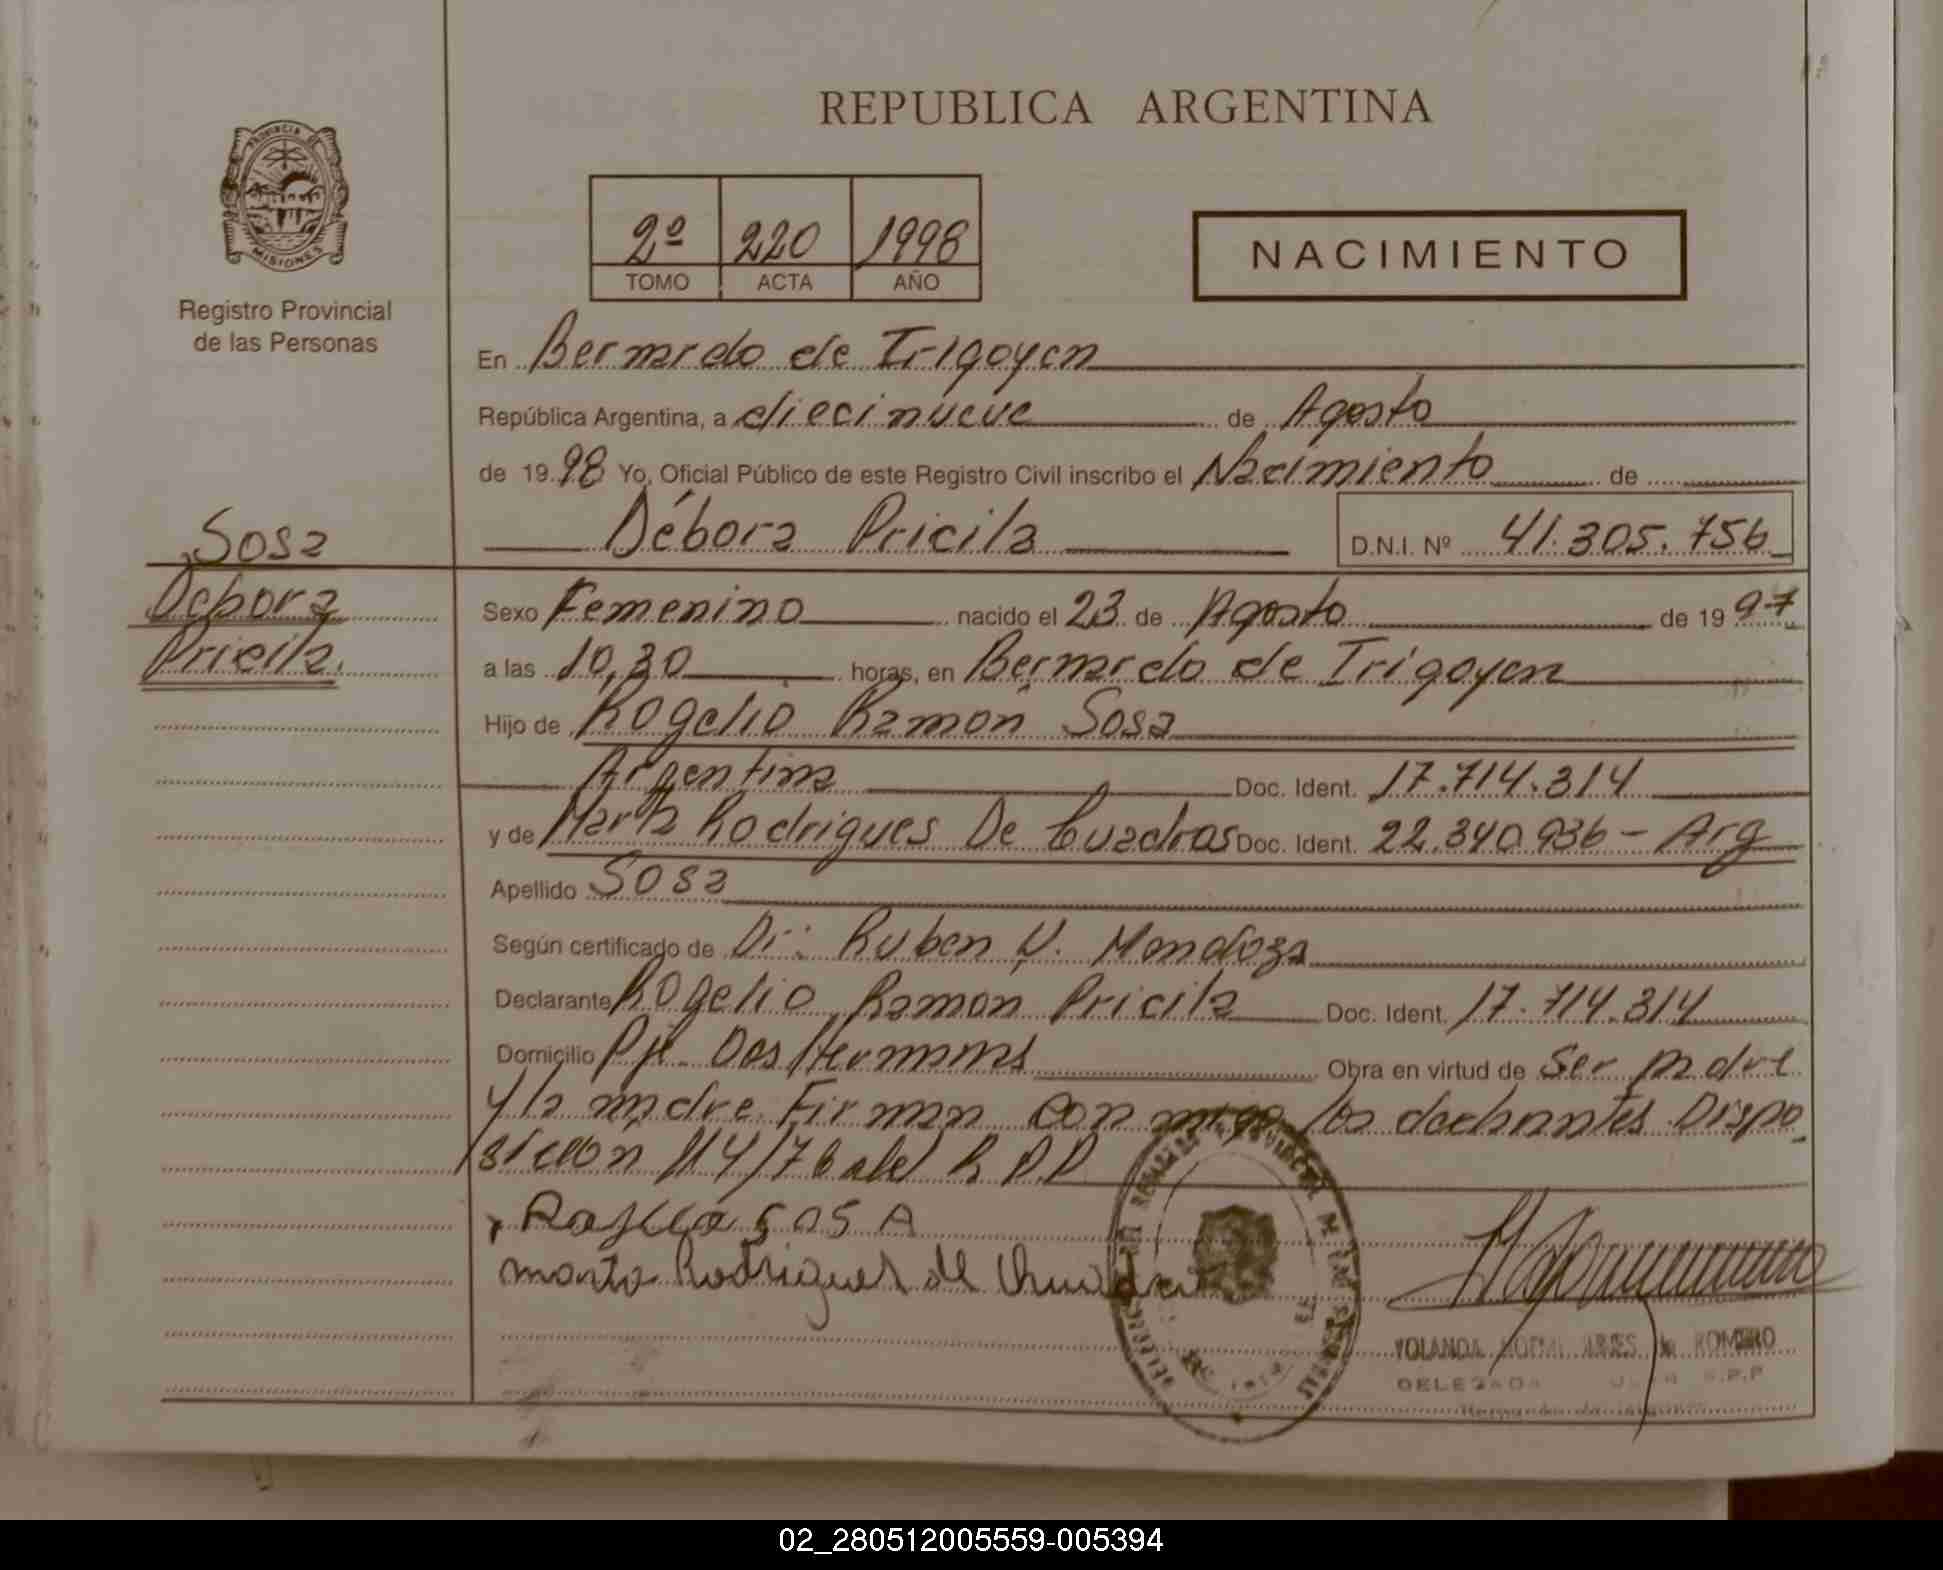 REPUBLICA ARGENTINA
PROVINCIA DE
MISIONES
Registro Provincial
de las Personas
2º 220 1998
TOMO ACTA AÑO
NACIMIENTO
En Bernardo de Irigoyen
República Argentina, a diecinueve de Agosto
de 1998 Yo, Oficial Público de este Registro Civil inscribo el Nacimiento de
Débora Pricila D.N.I. Nº 41.305.756
Sosa
Debora
Pricila.
Sexo Femenino nacido el 23 de Agosto de 1997
a las 10,30 horas, en Bernardo de Irigoyen
Hijo de Rogelio Ramón Sosa
Argentina Doc. Ident. 17.714.314
y de Marta Rodrigues De Cuadros Doc. Ident. 22.340.936 - Arg
Apellido Sosa
Según certificado de Dr: Ruben V. Mendoza
Declarante Rogelio Ramon Pricila Doc. Ident. 17.714.314
Domicilio Pje Dos Hermanas Obra en virtud de Ser padre
y la madre Firman con migo los declarantes Dispo
sición 114/76 del R.P.P
SOSA
marta Rodrigues de
YOLANDA ROMERO
DELEGADA R.P.P
02_280512005559-005394